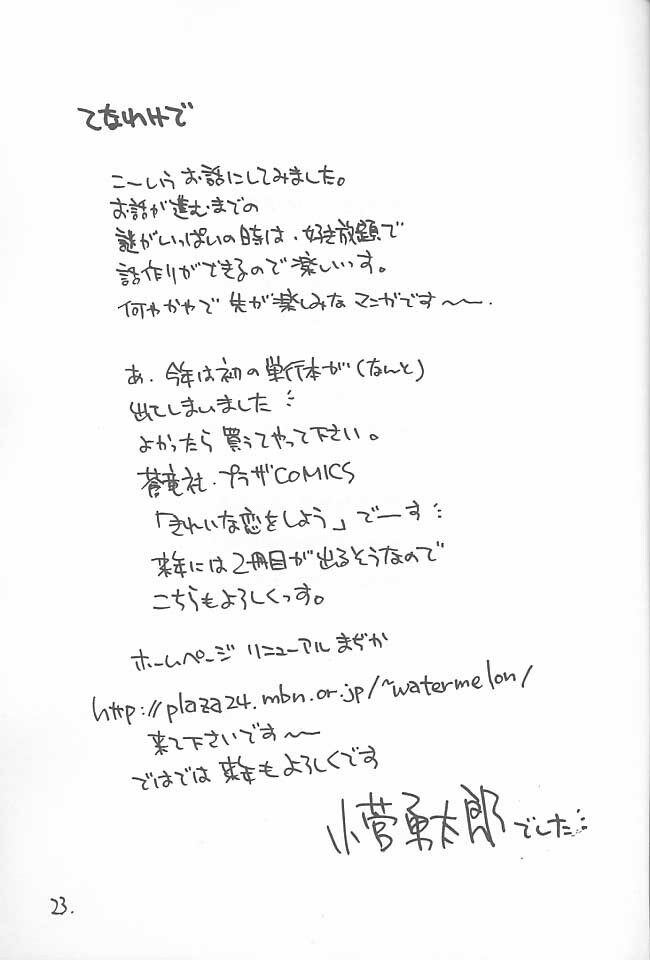 てなわけで
こーいうお話にしてみました。
お話が進むまでの
謎がいっぱいの時は、好き放題で
話作りができるので楽しいっす。
何やかやで先が楽しみなマンガです〜〜.
あ、今年は初の単行本が(なんと)
出てしまいました
よかったら買ってやって下さい。
蒼竜社.プラザCOMICS
「きれいな恋をしよう」でーす
来年には2冊目が出るそうなので
こちらもよろしくっす。
ホームページリニューアルまぢか
http://plaza24.mbn.or.jp/~watermelon/
来て下さいです〜〜
ではでは来年もよろしくです
小菅勇太郎でした…
23.